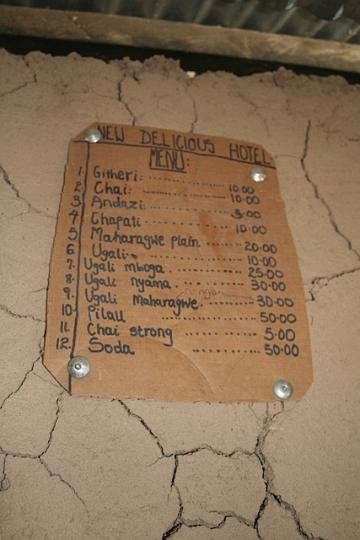 NEW DELICIOUS HOTEL
MENU:
1. Githeri: ............ 10.00
2. Chai: ............ 10.00
3. Andazi ............ 5.00
4. Chapati ............ 10.00
5. Maharagwe plain ...... 20.00
6. Ugali ............ 10.00
7. Ugali mboga ............ 25.00
8. Ugali nyama ............ 30.00
9. Ugali maharagwe ......... 30.00
10. Pilau ............ 50.00
11. Chai strong ............ 5.00
12. Soda ............ 50.00